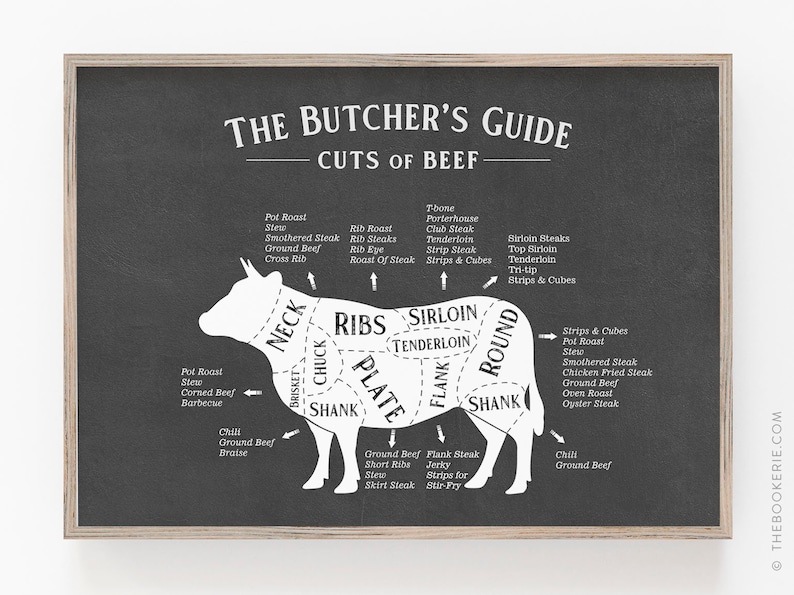 THE BUTCHER'S GUIDE
CUTS OF BEEF
Pot Roast
Stew
Smothered Steak
Ground Beef
Cross Rib
Rib Roast
Rib Steaks
Rib Eye
Roast Of Steak
T-bone
Porterhouse
Club Steak
Tenderloin
Strip Steak
Strips & Cubes
Sirloin Steaks
Top Sirloin
Tenderloin
Tri-tip
Strips & Cubes
NECK
RIBS
SIRLOIN
TENDERLOIN
ROUND
CHUCK
BRISKET
PLATE
FLANK
SHANK
SHANK
Strips & Cubes
Pot Roast
Stew
Smothered Steak
Chicken Fried Steak
Ground Beef
Oven Roast
Oyster Steak
Pot Roast
Stew
Corned Beef
Barbecue
Chili
Ground Beef
Braise
Ground Beef
Short Ribs
Stew
Skirt Steak
Flank Steak
Jerky
Strips for
Stir-Fry
Chili
Ground Beef
© THEBOOKERIE.COM